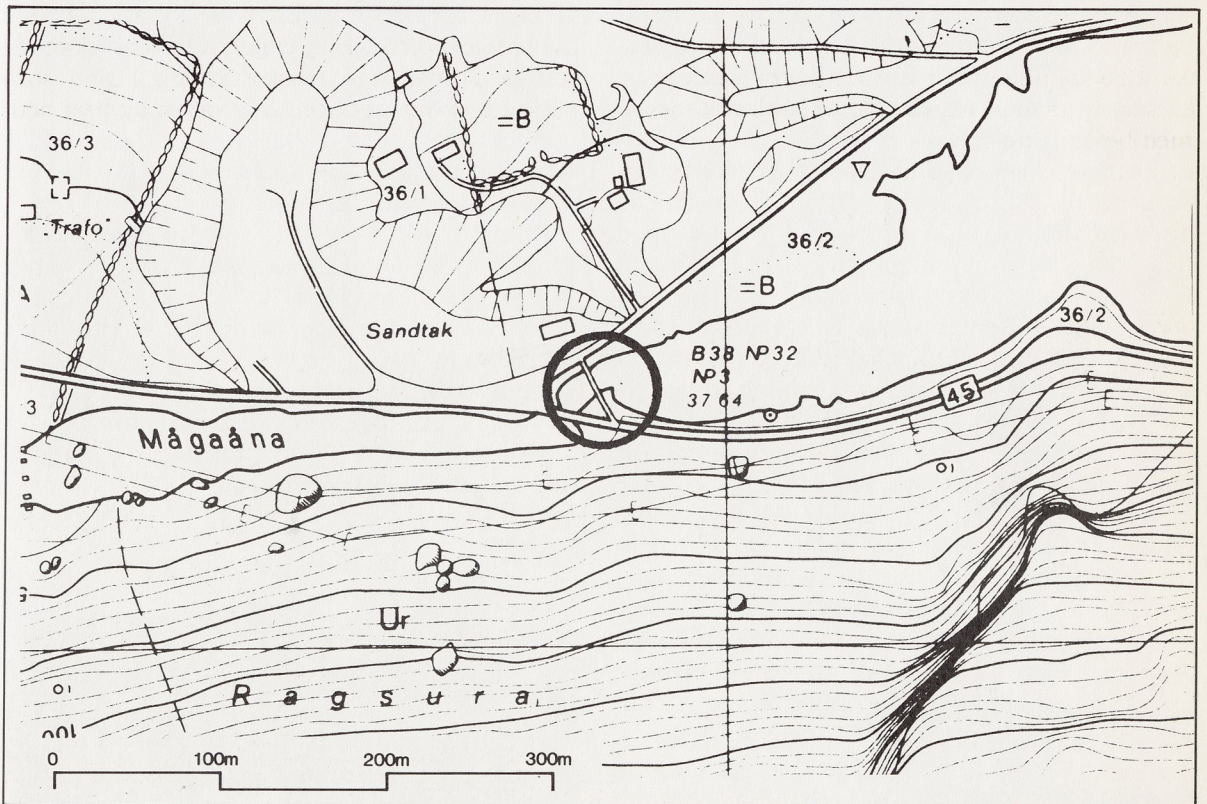 36/3
Trafo
=B
36/1
36/2
=B
Sandtak
B38 NP32
NP3
37 64
36/2
45
3
Mågaåna
Ur
Ragsura
100
0 100m 200m 300m